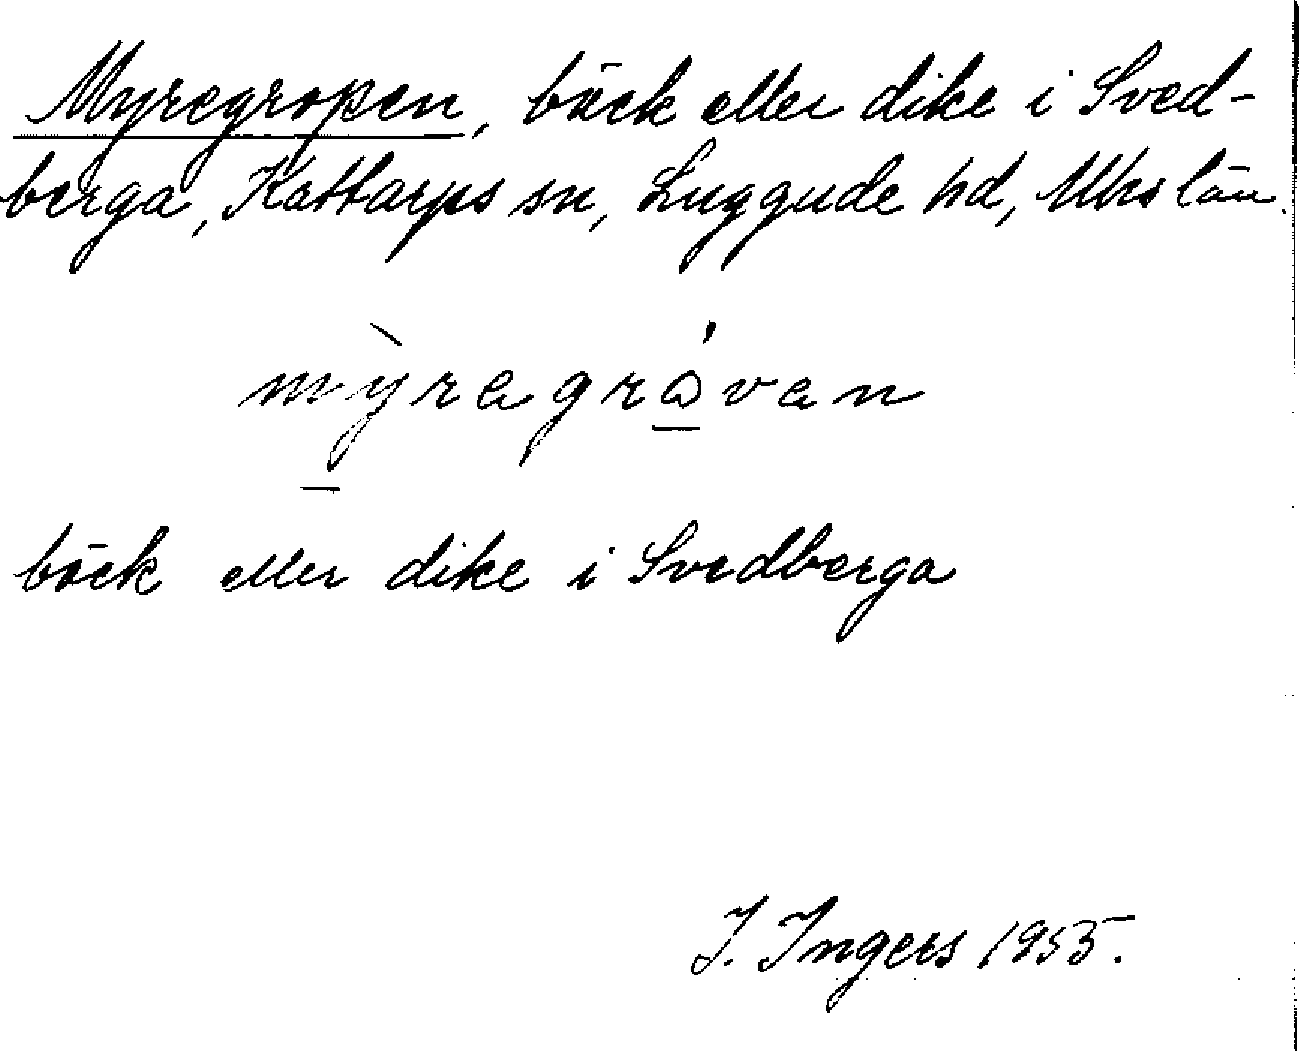 Myregropen, bäck eller dike i Sved-
berga, Kattarps sn, Luggude hd, Mhs län.
mỳregrávan
bäck eller dike i Svedberga
I. Ingers 1955.